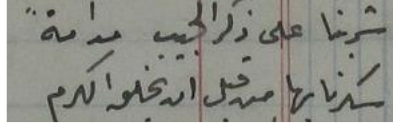 شربنا على ذكر الحبيب مدامة"
سكرنا بها من قبل ان يخلق الكرم